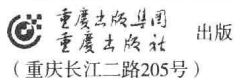 重庆出版集团
重庆出版社 出版
（重庆长江二路205号）